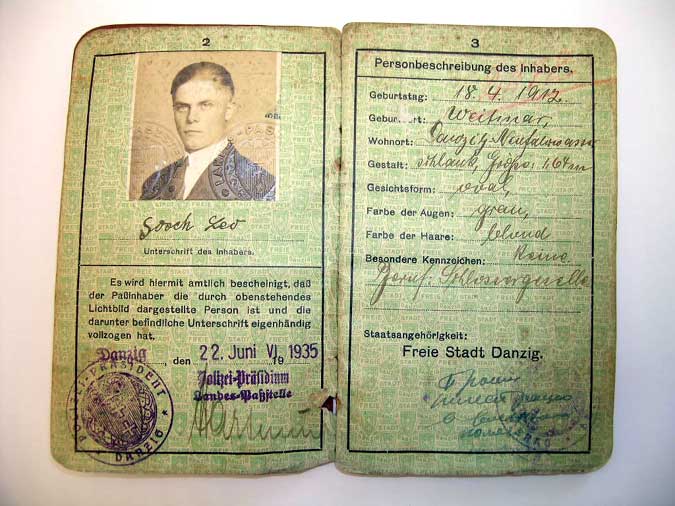 2
Sooch Leo
Unterschrift des Inhabers.
Es wird hiermit amtlich bescheinigt, daß
der Paßinhaber die durch obenstehendes
Lichtbild dargestellte Person ist und die
darunter befindliche Unterschrift eigenhändig
vollzogen hat.
Danzig, den 22. Juni VI. 1935
Polizei-Präsidium
Landes-Paßstelle
POLIZEI-PRÄSIDENT
DANZIG
3
Personbeschreibung des Inhabers.
Geburtstag: 18. 4. 1912.
Geburtsort: Weitmar,
Wohnort: Danzig, Neufahrwasser
Gestalt: schlank, Größe: 1,64 m
Gesichtsform: oval,
Farbe der Augen: grau,
Farbe der Haare: blond
Besondere Kennzeichen: Keine
Beruf: Schlossergeselle
Staatsangehörigkeit:
Freie Stadt Danzig.